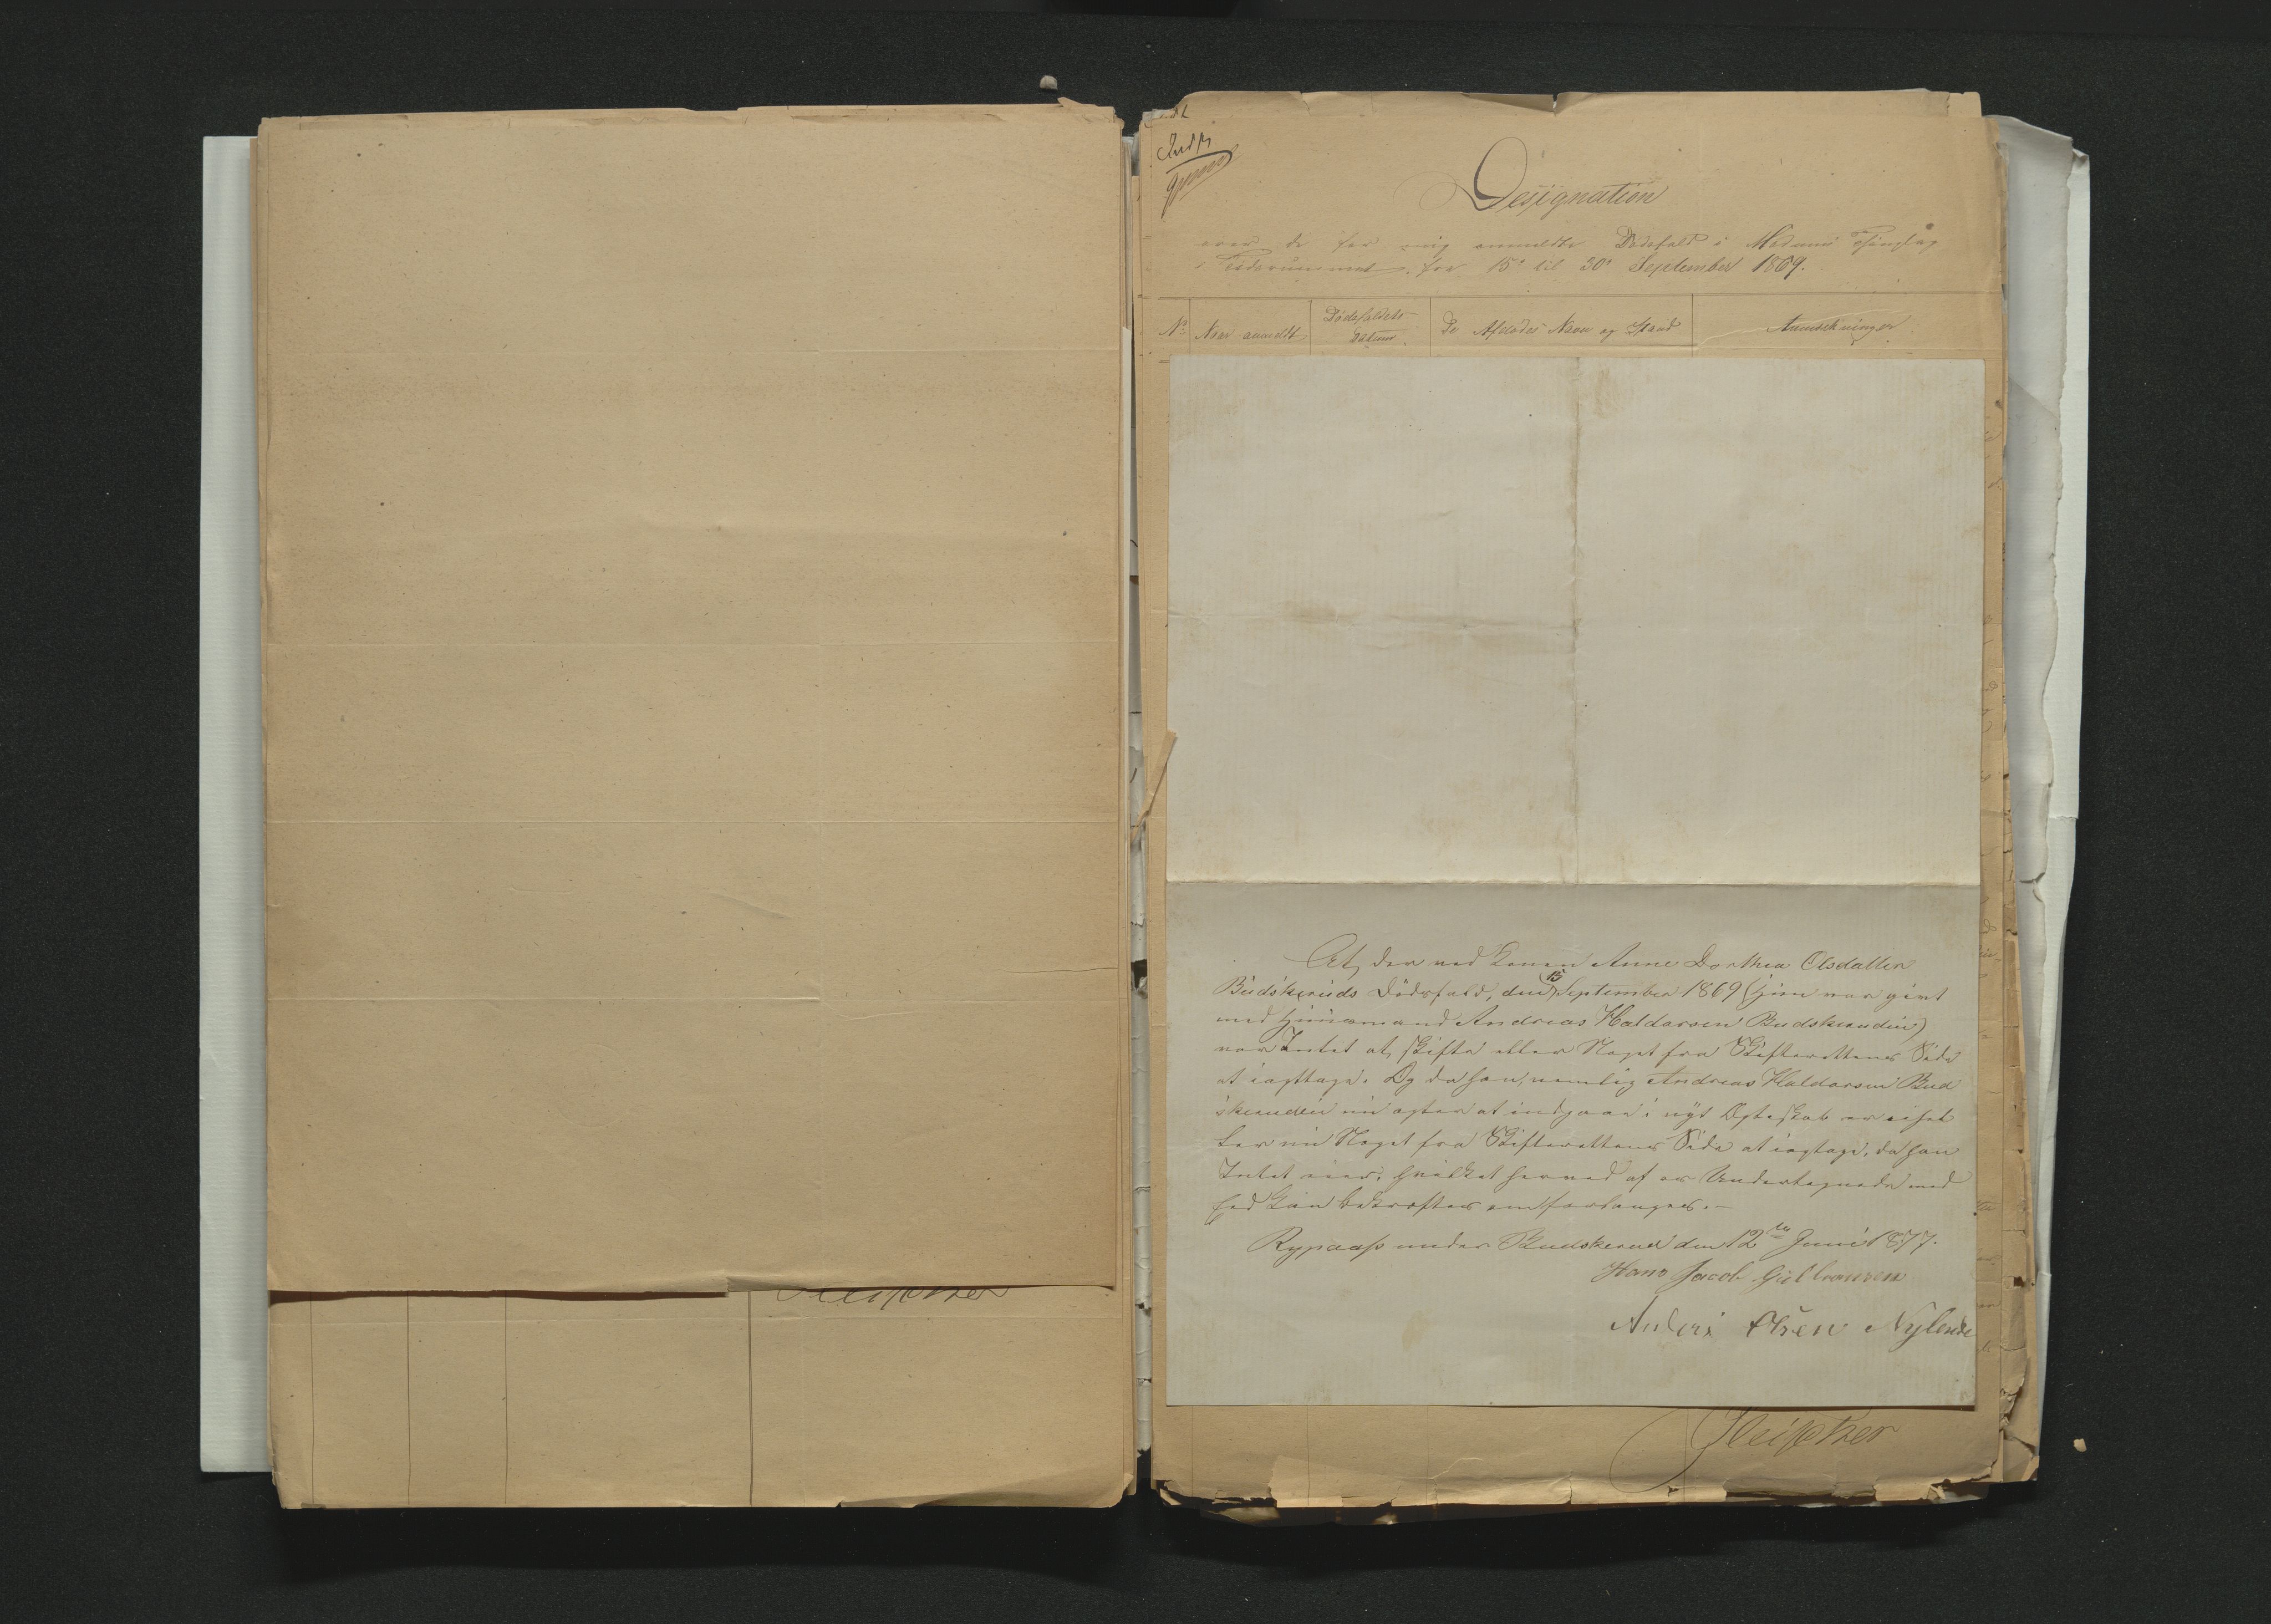 Indf
Designation
over de for mig anmeldte Dødsfald i Modums Thinglag
i Tidsrummet fra 15de til 30te September 1869.
No
Naar anmeldt
Dødsfaldets Datum
De Afdødes Navn og Stand
Anmærkninger
At der ved Konen Anne Dorthea Olsdatter
Budskeruds Dødsfald, den 15 September 1869 (hun var givt
med Huusmand Andreas Haldorsen Budskerudeie)
var Intet at skifte eller Noget fra Skifterettens Side
at iagttage. Og da han, nemlig Andreas Haldorsen Bud
skerudeie nu agter at indgaae i nyt Ægteskab er eihel
ler nu Noget fra Skifterettens Side at iagtage, da han
Intet eier, hvilket herved af os Undertegnede med
Eed kan bekræftes om forlanges.-
Rypaas under Budskerud den 12te Juni 1877.
Hans Jacob Gulbransen
Anders Olsen Nylende